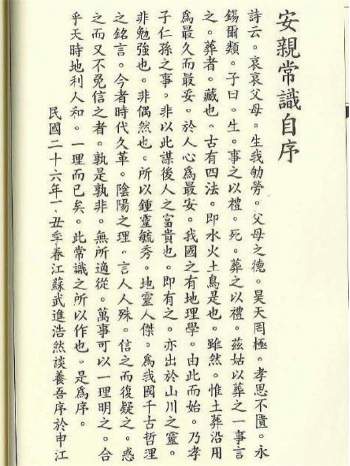 安親常識自序
詩云。哀哀父母。生我劬勞。父母之德。昊天罔極。孝思不匱。永
錫爾類。子曰。生。事之以禮。死。葬之以禮。茲姑以葬之一事言
之。葬者。藏也。古有四法。即水火土鳥是也。雖然。惟土葬沿用
爲最久而最妥。於人心爲最安。我國之有地理學。由此而始。乃孝
子仁孫之事。非以此謀後人之富貴也。即有之。亦出於山川之靈。
非勉強也。非偶然也。所以鍾靈毓秀。地靈人傑。爲我國千古哲理
之銘言。今者時代久革。陰陽之理。言人人殊。信之而復疑之。惑
之而又不免信之者。孰是孰非。無所適從。萬事可以一理明之。合
乎天時地利人和。一理而已矣。此常識之所以作也。是爲序。
民國二十六年一丑季春江蘇武進浩然談養吾序於申江